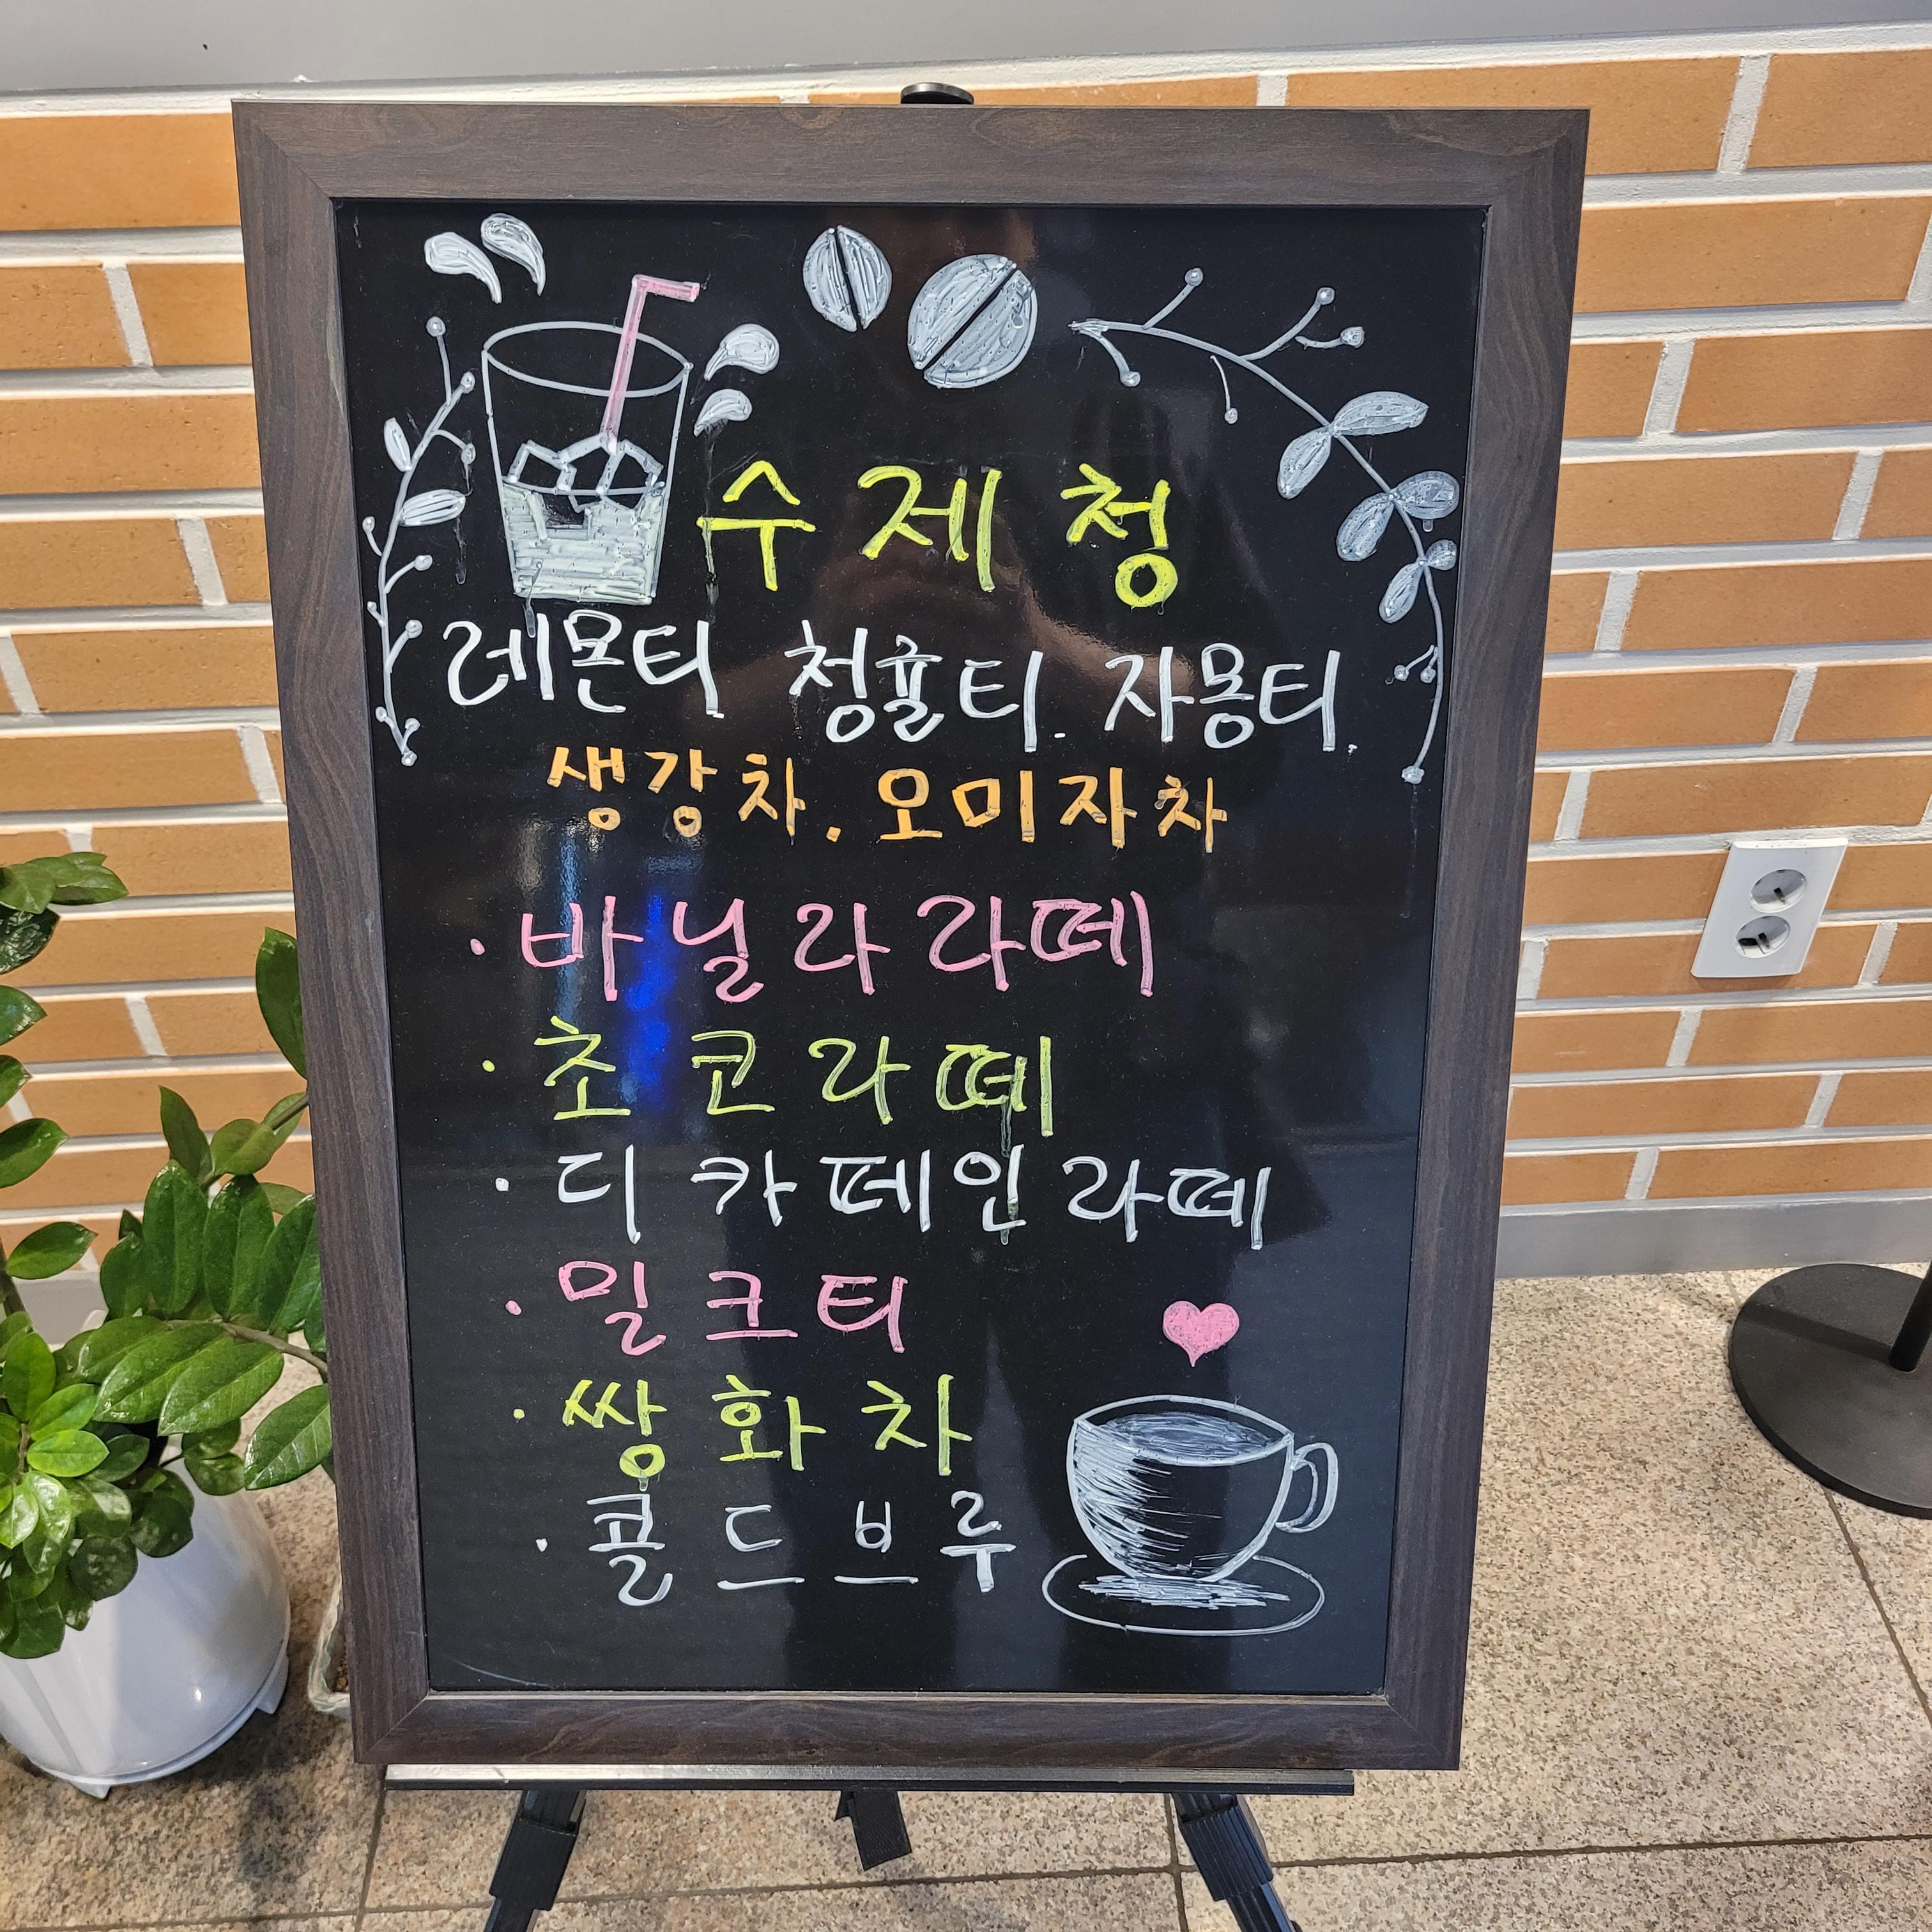 수제청
레몬티 청귤티. 자몽티.
생강차. 오미자차
· 바닐라라떼
· 초코라떼
· 디카페인라떼
· 밀크티
· 쌍화차
· 콜드브루